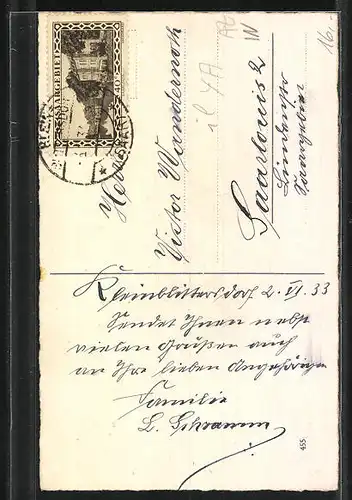 SAARGEBIET
Herrn
Victor Wandernoth
Saarlouis 2
Lindenstr
Saargebiet
16.-
Kleinblittersdorf 2. VI. 33
Sendet Ihnen nebst
vielen Grüßen auch
an Ihre lieben Angehörigen
Familie
L. Schramm
455